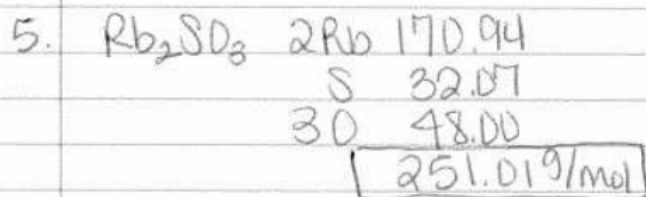 5. Rb₂SO₃ 2Rb 170.94
S 32.07
3O 48.00
251.01g/mol